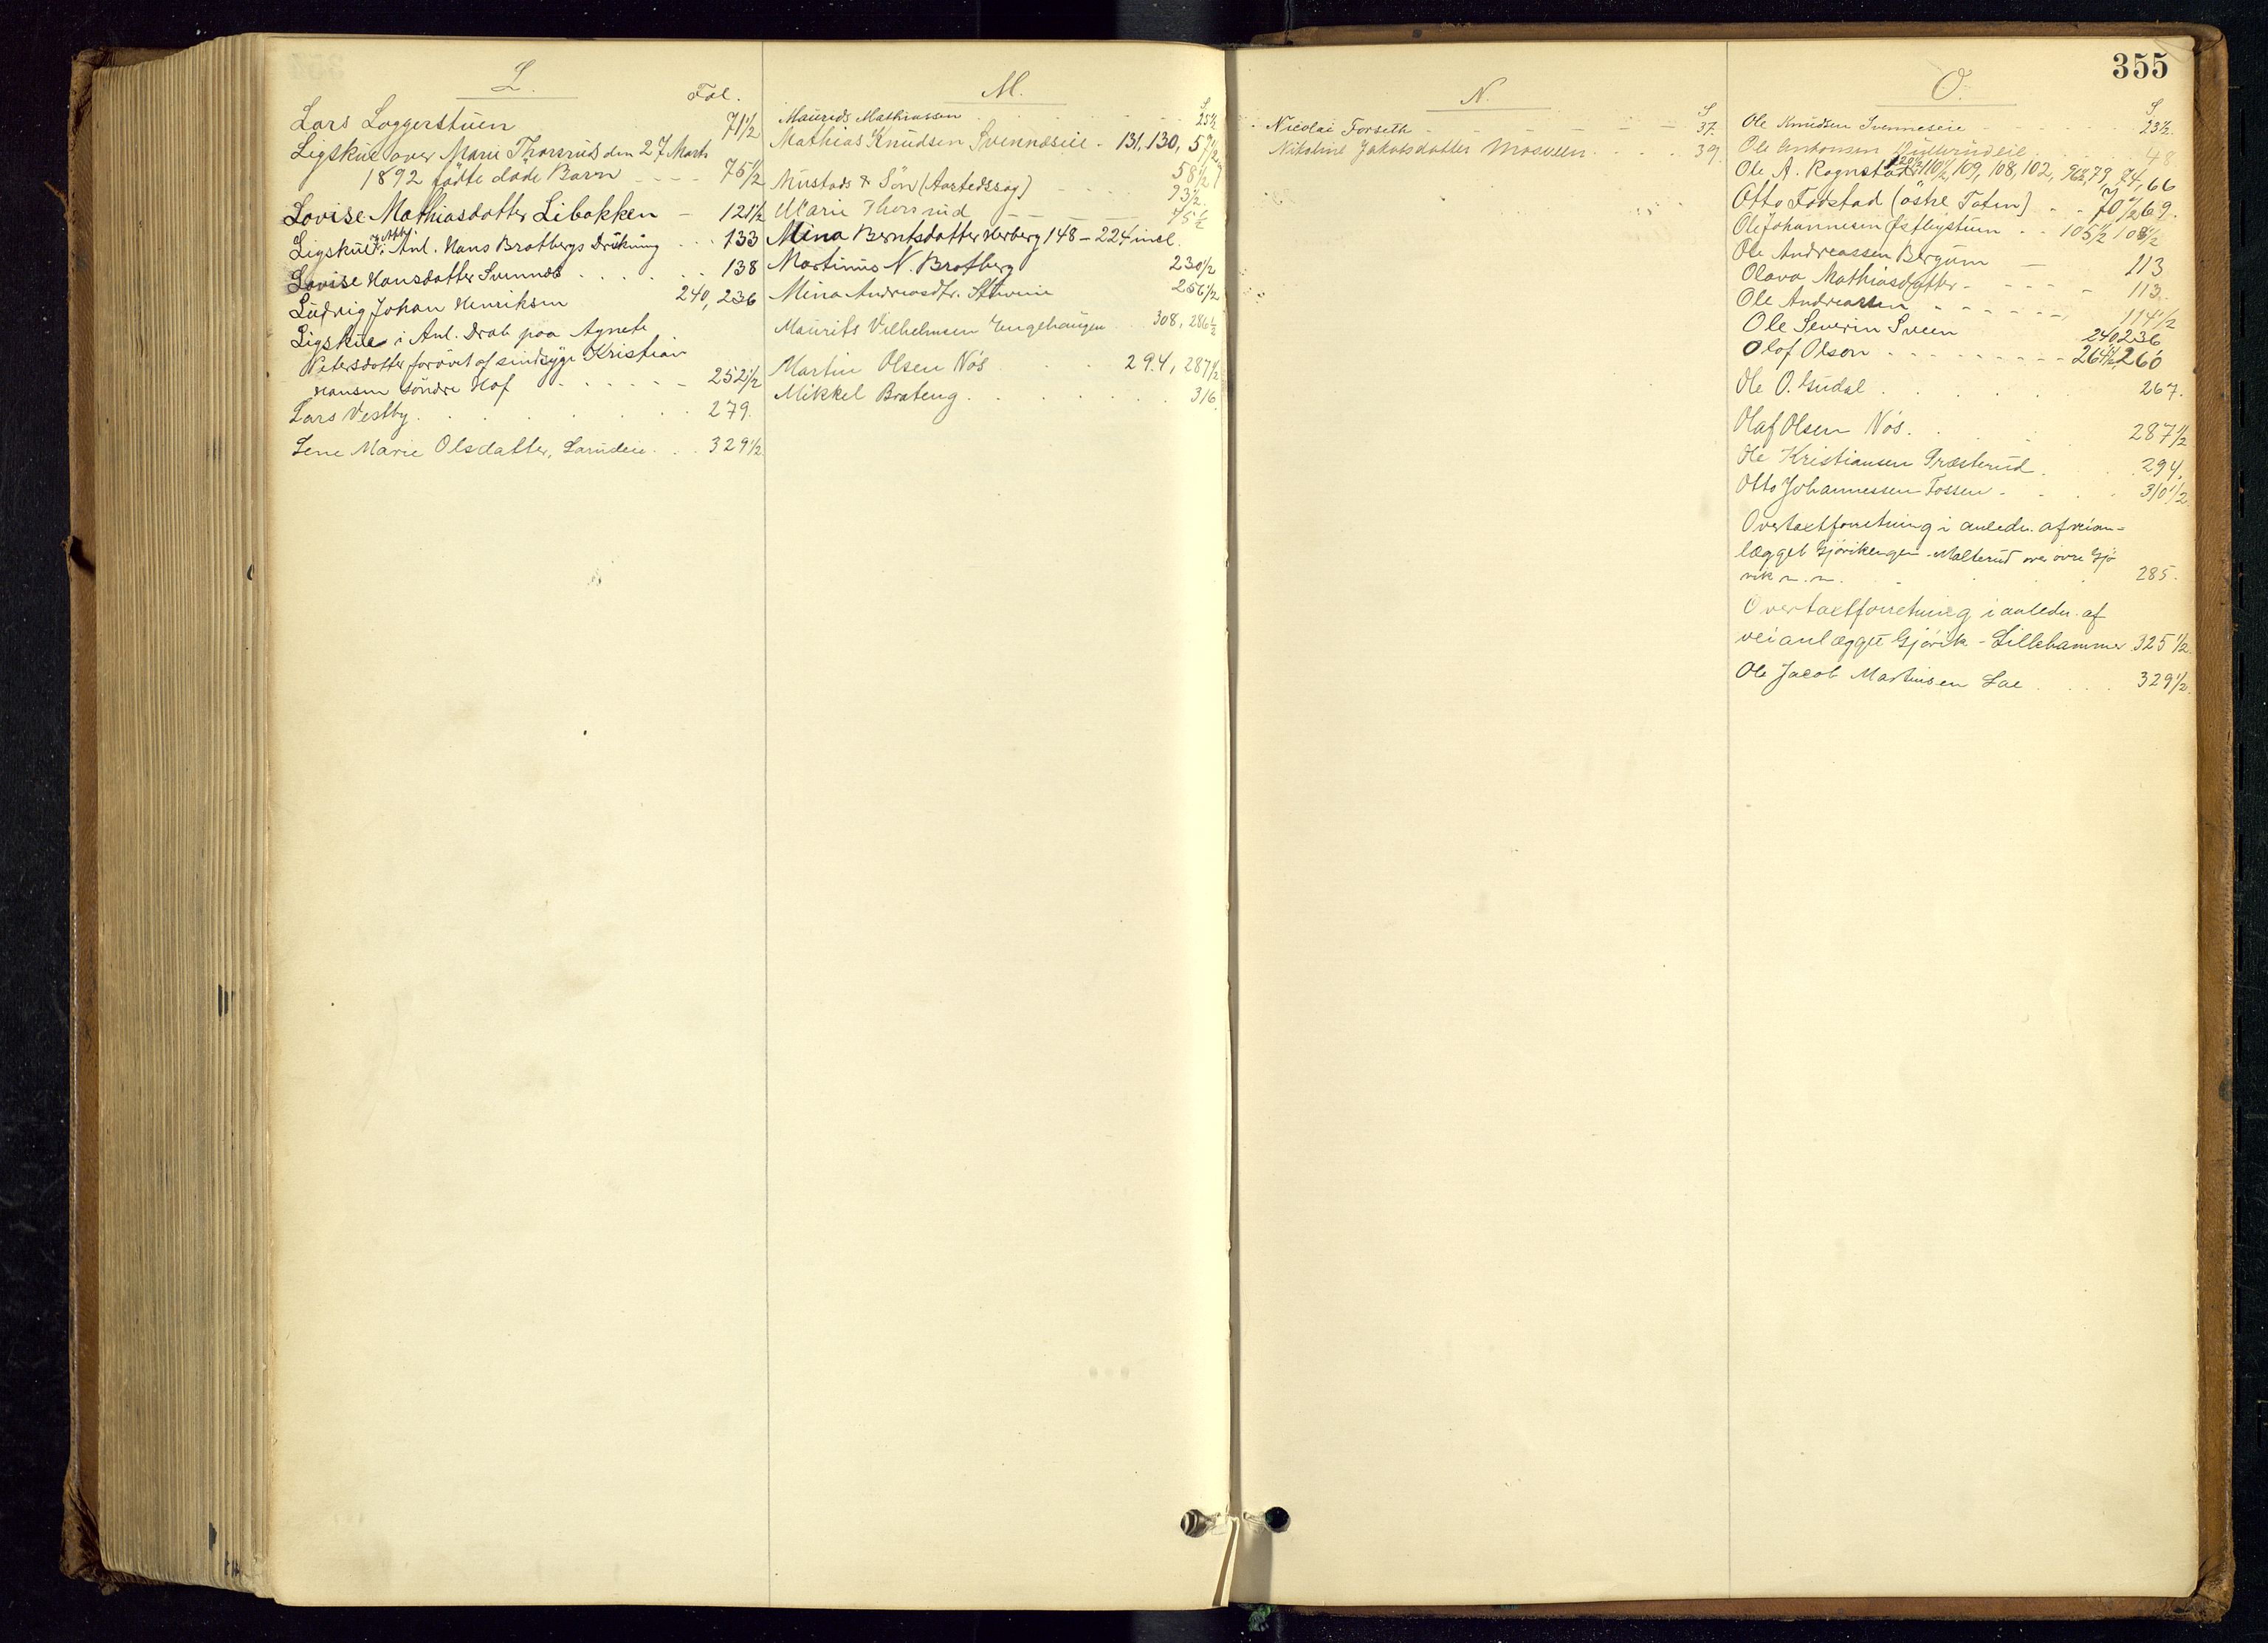 355
L.
Fol.
Lars Loggerstuen 71 1/2
Ligskue over Marie Thorsruds den 27 Marts
1892 fødte døde Barn - - - - 75 1/2
Lovise Mathiasdatter Libakken - 121 1/2
Ligskue i Anl. Hans Brotbergs Drukning - - - 133
Lovise Hansdatter Svennes . . . . . . 138
Ludvig Johan Henriksen 240, 236
Ligskue i Anl. Drab paa Agnete
Petersdatter forøvet af sindssyge Kristian
Hansen søndre Hof - - - - - - 252 1/2
Lars Vestby . . . . . . . . 279.
Lene Marie Olsdatter, . . . 329 1/2
M.
S
Maurids Mathiassen . . . . . . 25 1/2
Mathias Knudsen Svennæseie - 131, 130, 57 1/2,
58 1/2
Mustads & Søn (Aastedssag) - - - - 93 1/2.
Marie Thorsrud - - - - - 75 1/2
Mina Berntsdatter Herberg 148 - 224 incl.
Martinus N. Brotberg 230 1/2
Mina Andreasdtr. 256 1/2
Maurits Vilhelmsen Engehaugen 308, 286 1/2
Martin Olsen Nøs . . . 294, 287 1/2
Mikkel Brateng . . . . . . . 316.
N.
S
Nicolai Forseth - - - - - - - 37.
Nikoline Jakobsdatter Mosveen . . . . 39.
O.
S
Ole Knudsen Svenneseie - - - - - - 23 1/2.
Ole Antonsen . . . . 48
Ole A. Rognstad 110 1/2, 109, 108, 102, 96 1/2, 79, 74, 66
Otto Fodstad (østre Toten) - - - 70 1/2, 69.
Ole Johannesen Østbystuen . . 105 1/2 108 1/2
Ole Andreassen Bergum - 113
Olava Mathiasdatter - - - - - 113.
Ole Andreassen - - - - - - 114 1/2
Ole Severin Sveen 240, 236
Olof Olson - - - - - - - - - 264 1/2, 260
Ole O. Gudal . . . . . . 267.
Olaf Olsen Nøs . . . . 287 1/2
Ole Kristiansen Præsterud . . . 294.
Otto Johannessen Fossen - . . . 310 1/2
Overtaxtforretning i anledn. af veian-
lægget Gjøvikengen - Malterud over øvre Gjø
vik m. m. . . . . 285.
Overtaxtforretning i anledn. af
veianlægget Gjøvik - Lillehammer 325 1/2.
Ole Jacob Martinsen Lae . . . . 329 1/2.